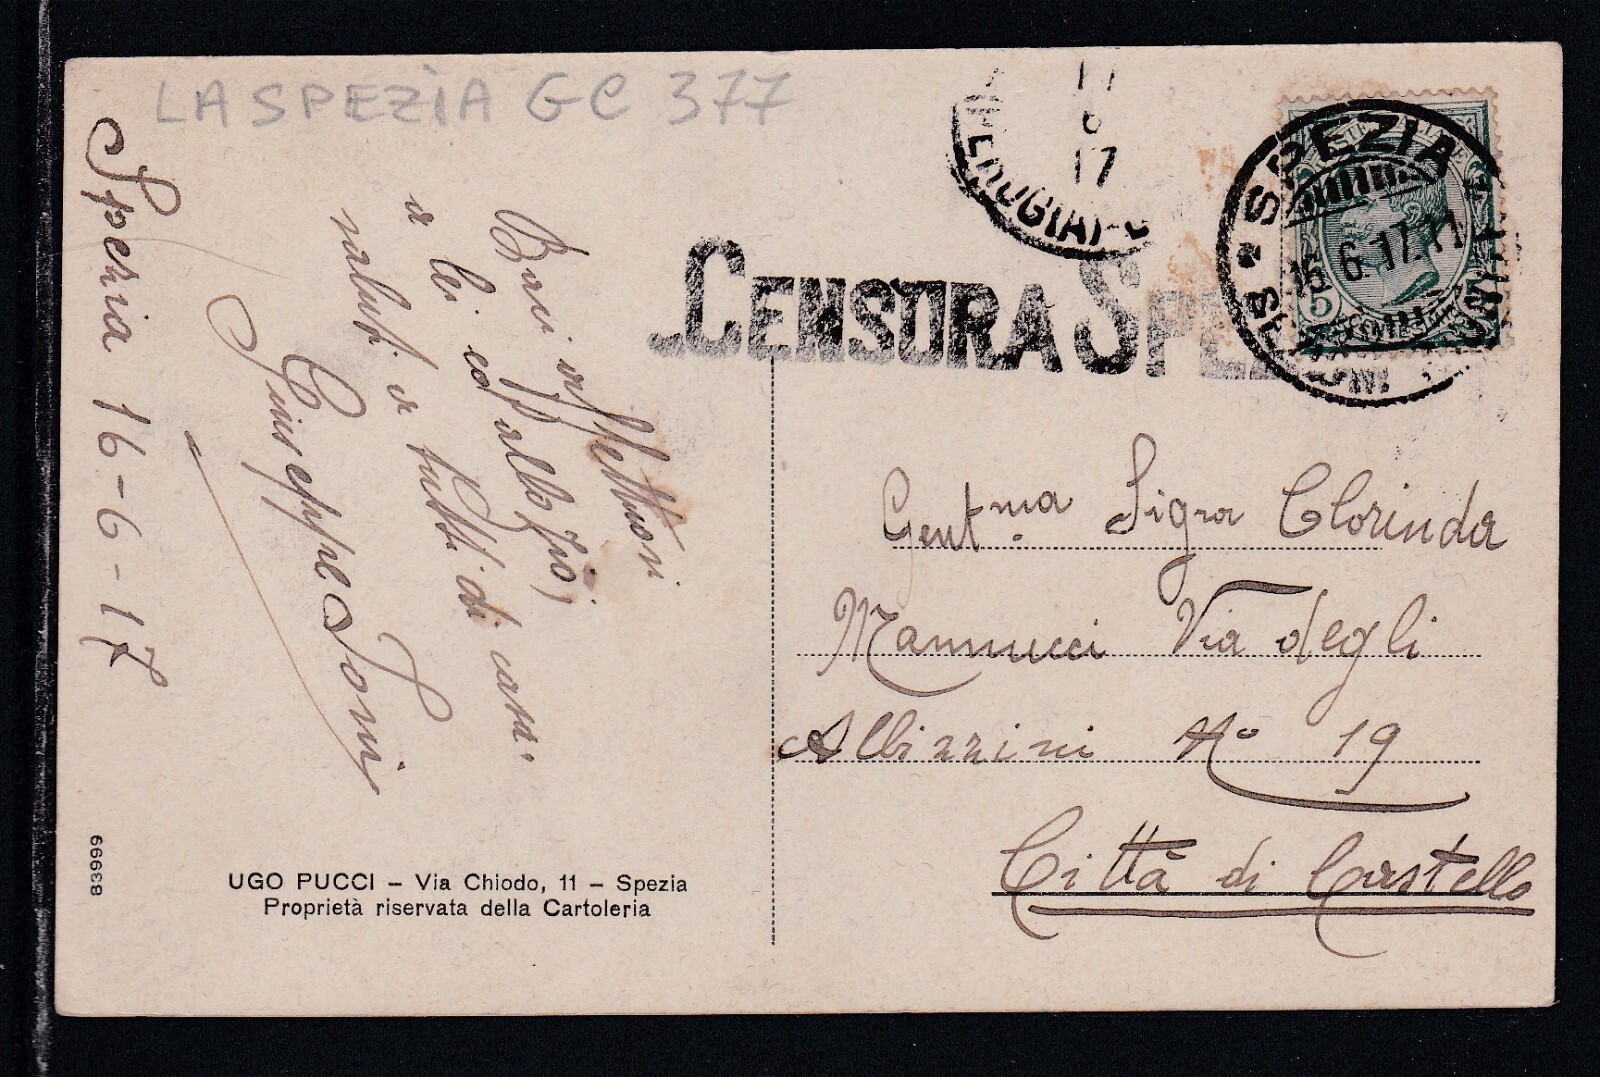 LA SPEZIA GC 377
Spezia 16-6-17
Baci
a lei ed allo zio,
saluti a tutti di casa.
Giuseppe Toni
17
6
17
PERUGIA
CENSURA SPEZIA
SPEZIA
16.6.17.11
5
Gent.ma Sigra Clorinda
Mannucci Via degli
Albizzini No 19
Città di Castello
83999
UGO PUCCI – Via Chiodo, 11 – Spezia
Proprietà riservata della Cartoleria